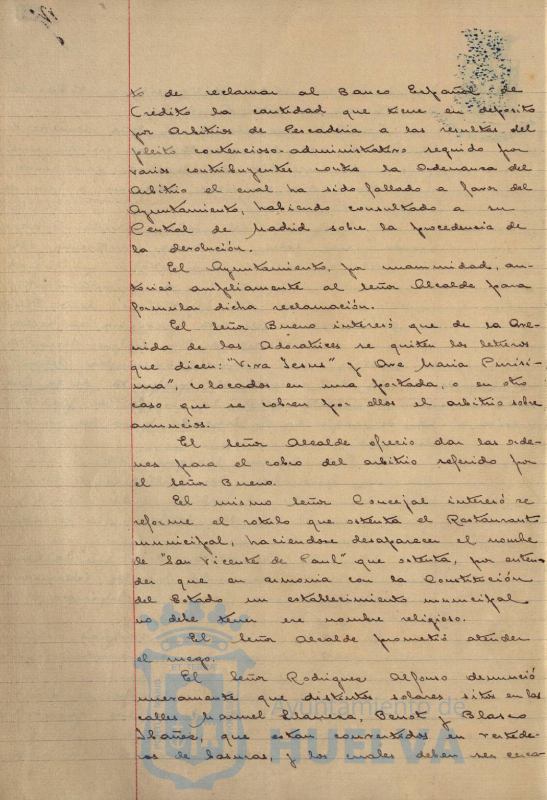 to de reclamar al Banco Español de
Crédito la cantidad que tiene en depósito
por Arbitrios de Pescadería a las resultas del
pleito contencioso-administrativo seguido por
varios contribuyentes contra la Ordenanza del
Arbitrio el cual ha sido fallado a favor del
Ayuntamiento, habiendo consultado a su
Central de Madrid sobre la procedencia de
la devolución.
El Ayuntamiento, por unanimidad, au-
torizó ampliamente al Señor Alcalde para
formular dicha reclamación.
El Señor Bueno interesó que de la Ave-
nida de las Adoratrices se quiten los letreros
que dicen: "Viva Jesus" y Ave Maria Purisi-
ma", colocados en una portada, o en otro
caso que se cobren por ellos el arbitrio sobre
anuncios.
El Señor Alcalde ofreció dar las orde-
nes para el cobro del arbitrio referido por
el Señor Bueno.
El mismo Señor Concejal interesó se
reforme el rotulo que ostenta el Restaurant
municipal, haciendose desaparecer el nombre
de "San Vicente de Paul" que ostenta, por enten-
der que en armonia con la Constitución
del Estado un establecimiento municipal
no debe tener ese nombre religioso.
El Señor Alcalde prometió atender
el ruego.
El Señor Rodriguez Alfonso denunció
nuevamente que distintos solares sitos en las
calles Manuel Siurot, Benot y Blasco
Ibáñez, que estan convertidos en vertede-
ros de basuras, y los cuales deben ser cerca-
Ayuntamiento de
HUELVA